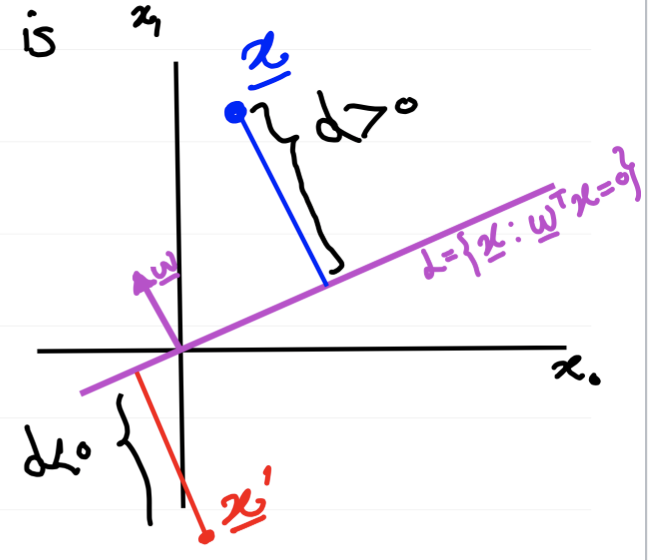 is
x₁
x
d>0
L={x: wᵀx=0}
w
x₀
d<0
x'